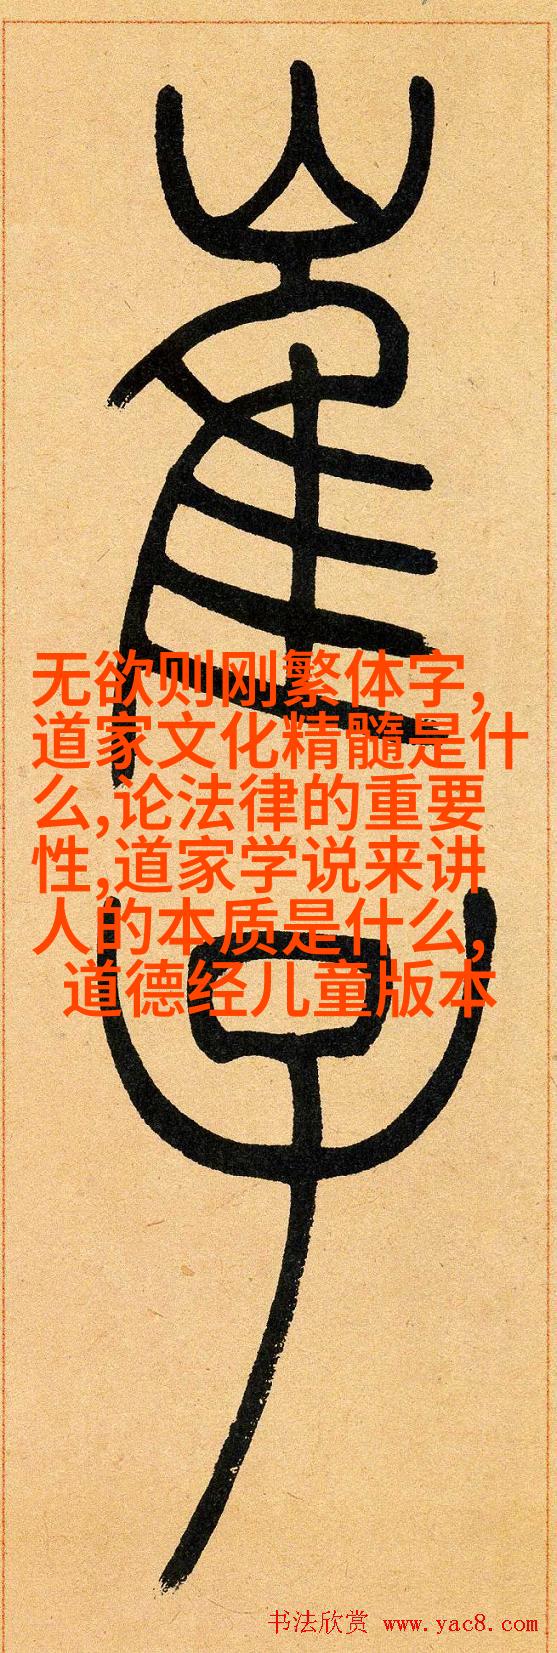 无欲则刚繁体字,
道家文化精髓是什
么,论法律的重要
性,道家学说来讲
人的本质是什么,
道德经儿童版本
书法欣赏 www.yac8.com